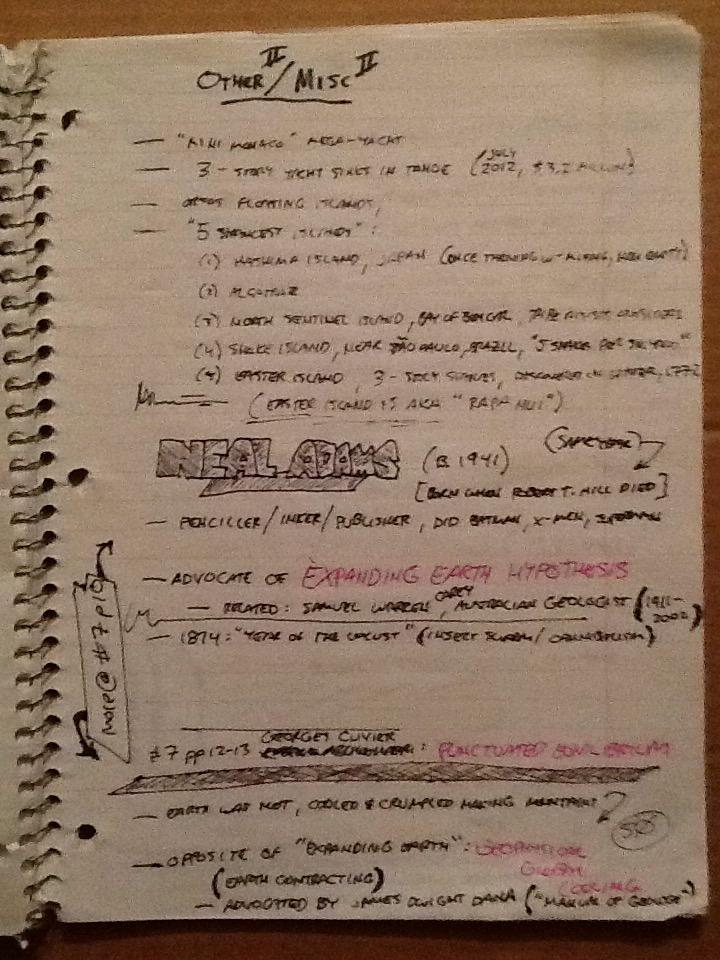 II II
OTHER/MISC
— "MINI MONACO" MEGA-YACHT
— 3-STORY YACHT SINKS IN TAHOE (JULY 2012, $3.2 MILLION)
— FLOATING ISLANDS,
— "5 ISLANDS":
(1) HASHIMA ISLAND, JAPAN (ONCE THRIVING W- MINING, NOW EMPTY)
(2) ALCATRAZ
(3) NORTH SENTINEL ISLAND, BAY OF BENGAL, TRIBE OUTSIDERS
(4) SNAKE ISLAND, NEAR SÃO PAULO, BRAZIL, "5 SNAKES PER
(5) EASTER ISLAND, 3-STORY STATUES, DISCOVERED 1772
(EASTER ISLAND IS AKA "RAPA NUI")
NEAL ADAMS (B. 1941) (SAME YEAR)
[BORN WHEN ROBERT T. HILL DIED]
— PENCILLER/INKER/PUBLISHER, DID BATMAN, X-MEN, SUPERMAN
— ADVOCATE OF EXPANDING EARTH HYPOTHESIS
— RELATED: SAMUEL WARREN CAREY, AUSTRALIAN GEOLOGIST (1911-2002)
— 1874: "YEAR OF THE LOCUST" (INSECT SWARM/CANNIBALISM)
MORE @ #7 p10
GEORGES CUVIER
#7 pp 12-13 : PUNCTUATED EQUILIBRIUM
— EARTH WAS HOT, COOLED & CRUMPLED MAKING MOUNTAINS
— OPPOSITE OF "EXPANDING EARTH": GEOPHYSICAL GLOBAL COOLING
(EARTH CONTRACTING)
— ADVOCATED BY JAMES DWIGHT DANA ("MANUAL OF GEOLOGY")